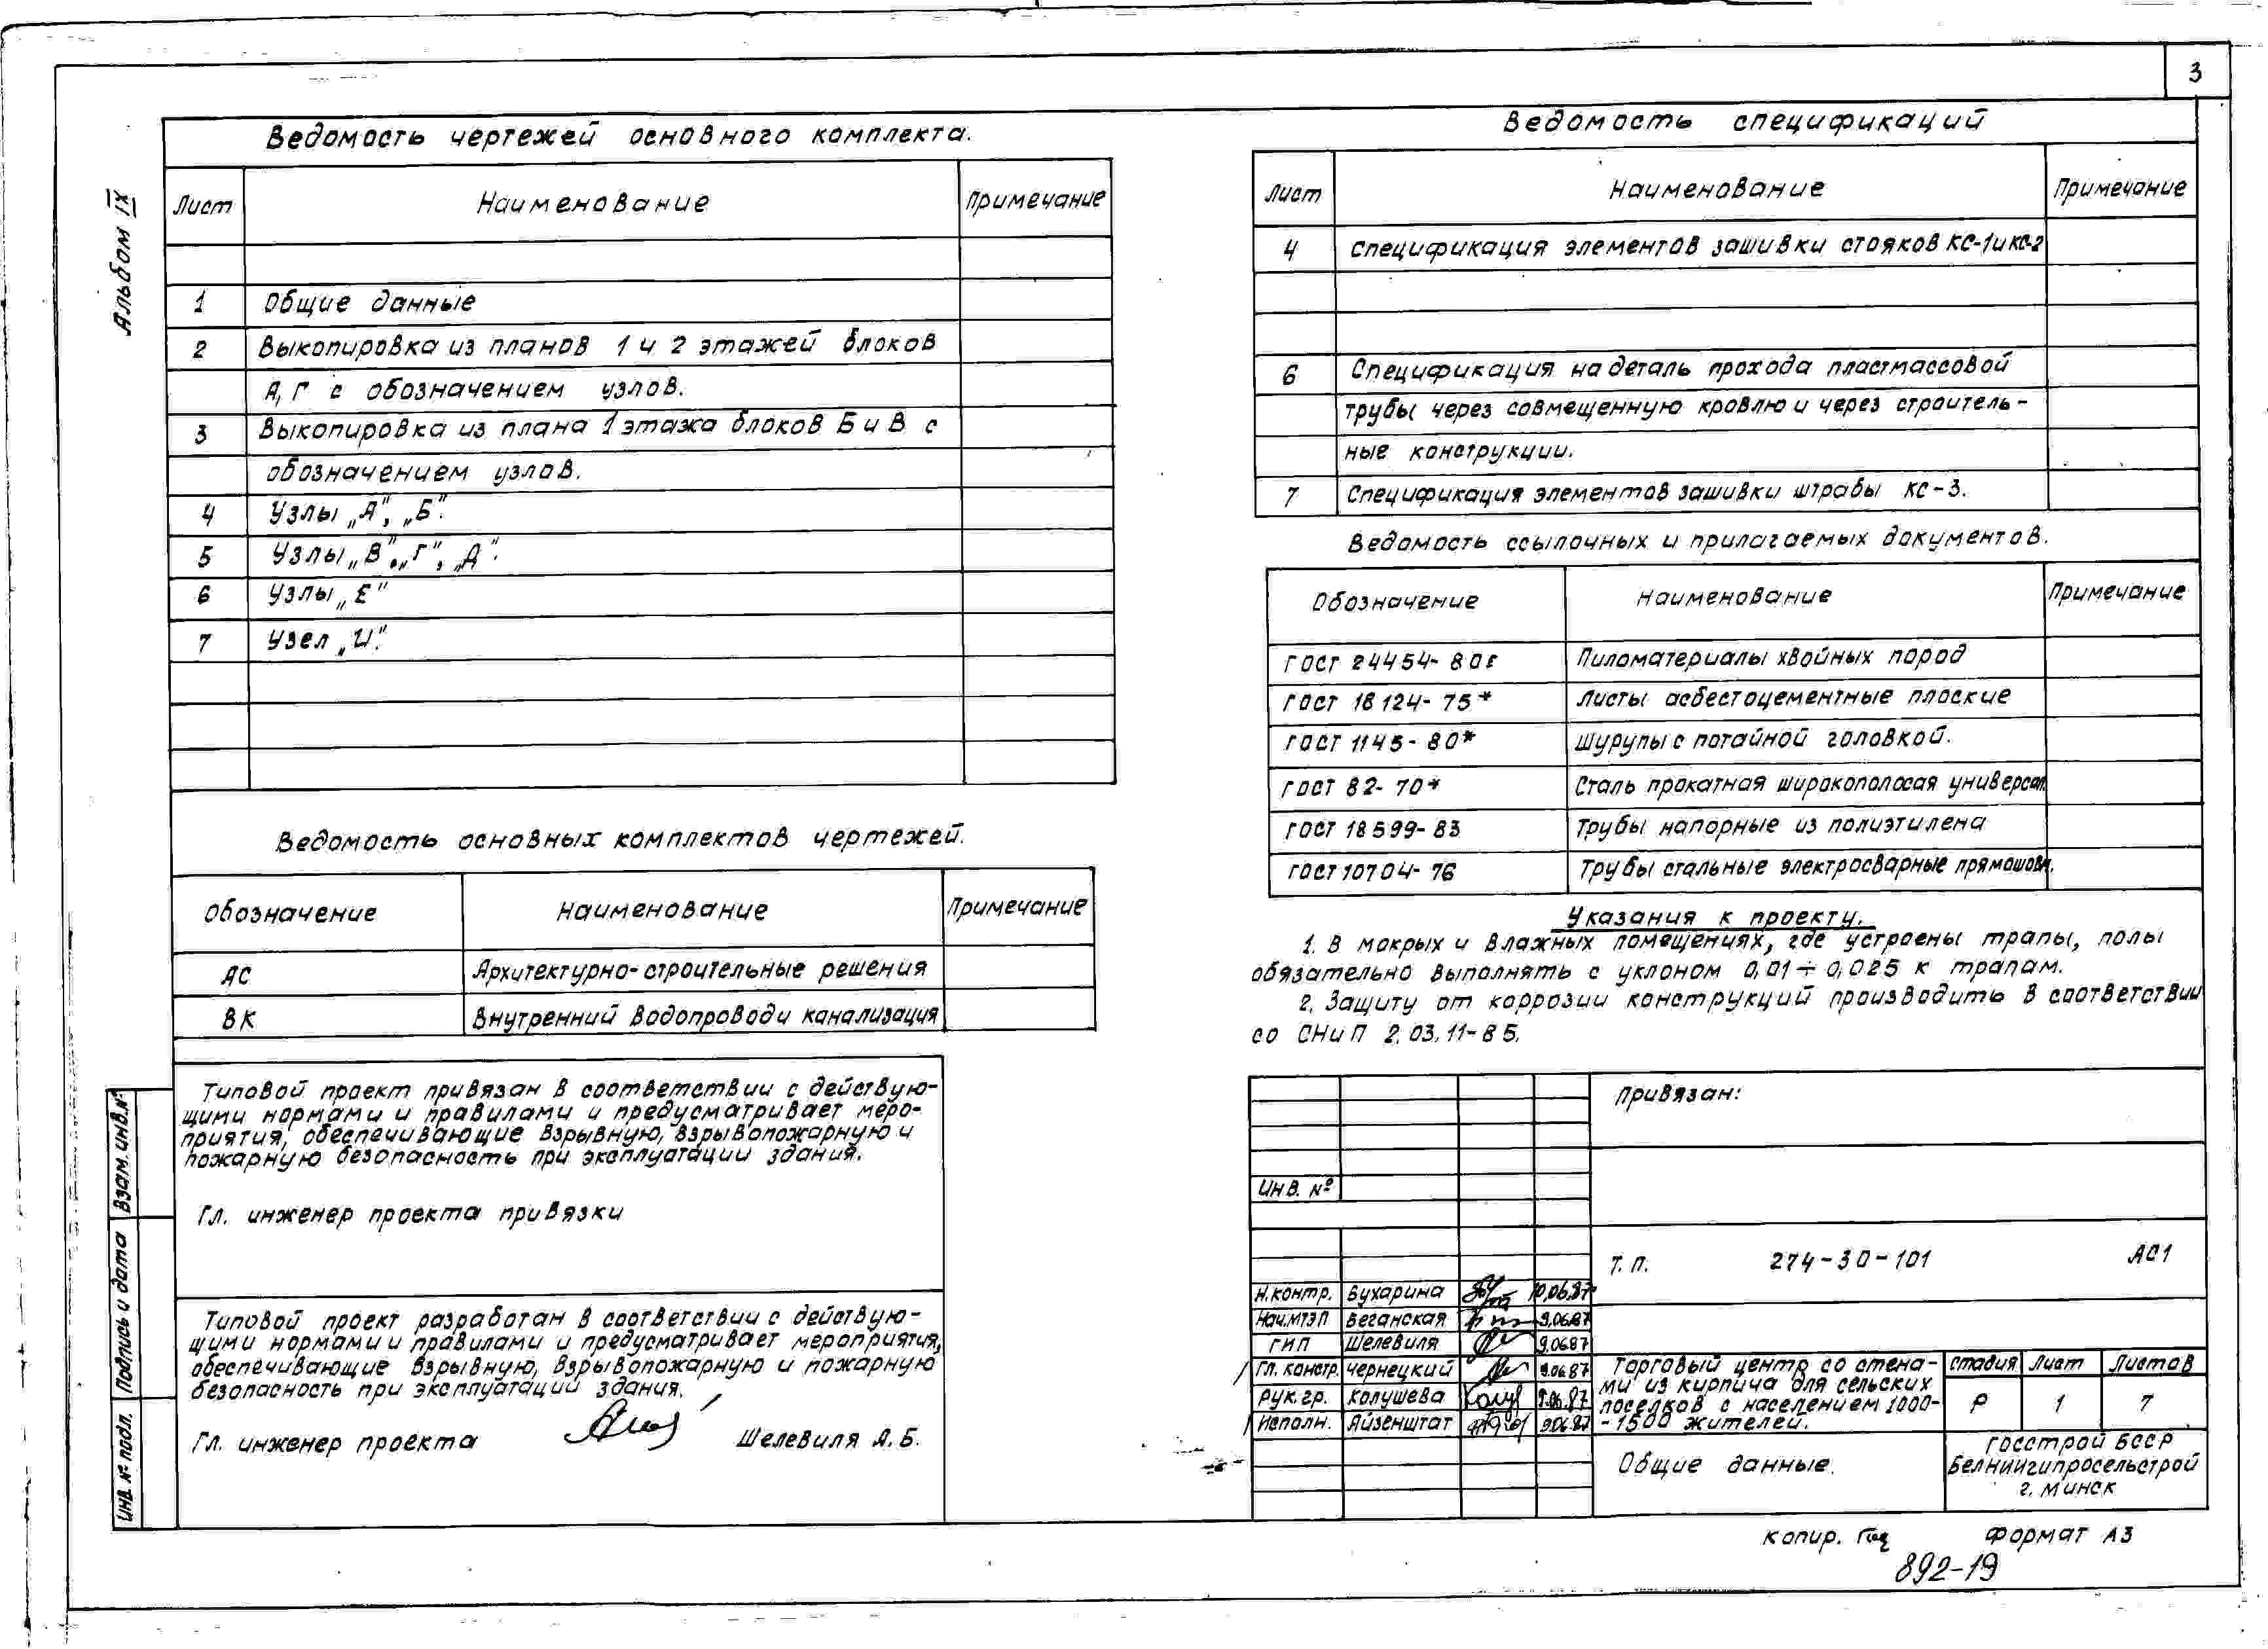 3
Альбом IX
Ведомость чертежей основного комплекта.
Лист Наименование Примечание
1 Общие данные
2 Выкопировка из планов 1 и 2 этажей блоков
А, Г с обозначением узлов.
3 Выкопировка из плана 1 этажа блоков Б и В с
обозначением узлов.
4 Узлы „А", „Б".
5 Узлы „В", „Г", „Д".
6 Узлы „Е"
7 Узел „И".
Ведомость основных комплектов чертежей.
Обозначение Наименование Примечание
АС Архитектурно-строительные решения
ВК Внутренний водопровод и канализация
Типовой проект привязан в соответствии с действую-
щими нормами и правилами и предусматривает меро-
приятия, обеспечивающие взрывную, взрывопожарную и
пожарную безопасность при эксплуатации здания.
Гл. инженер проекта привязки
Типовой проект разработан в соответствии с действую-
щими нормами и правилами и предусматривает мероприятия,
обеспечивающие взрывную, взрывопожарную и пожарную
безопасность при эксплуатации здания.
Гл. инженер проекта Шелевиля А.Б.
Взам. инв. №
Подпись и дата
Инв. № подл.
Ведомость спецификаций
Лист Наименование Примечание
4 Спецификация элементов зашивки стояков КС-1 и КС-2
6 Спецификация на деталь прохода пластмассовой
трубы через совмещенную кровлю и через строитель-
ные конструкции.
7 Спецификация элементов зашивки штрабы КС-3.
Ведомость ссылочных и прилагаемых документов.
Обозначение Наименование Примечание
ГОСТ 24454-80Е Пиломатериалы хвойных пород
ГОСТ 18124-75* Листы асбестоцементные плоские
ГОСТ 1145-80* Шурупы с потайной головкой.
ГОСТ 82-70* Сталь прокатная широкополосая универсал.
ГОСТ 18599-83 Трубы напорные из полиэтилена
ГОСТ 10704-76 Трубы стальные электросварные прямошовн.
Указания к проекту.
1. В мокрых и влажных помещениях, где устроены трапы, полы
обязательно выполнять с уклоном 0,01÷0,025 к трапам.
2. Защиту от коррозии конструкций производить в соответствии
со СНиП 2.03.11-85.
Привязан:
Инв. №
Т.П. 274-30-101 АС1
Н.контр. Бухарина 10.06.87
Нач.МТЭП Беганская 9.06.87
ГИП Шелевиля 9.06.87
Гл. констр. Чернецкий 9.06.87
Рук.гр. Колушева 9.06.87
Исполн. Айзенштат 9.06.87
Торговый центр со стена-
ми из кирпича для сельских
поселков с населением 1000-
-1500 жителей.
Стадия Лист Листов
Р 1 7
Общие данные.
Госстрой БССР
Белниигипросельстрой
г. Минск
Копир. Формат А3
892-19